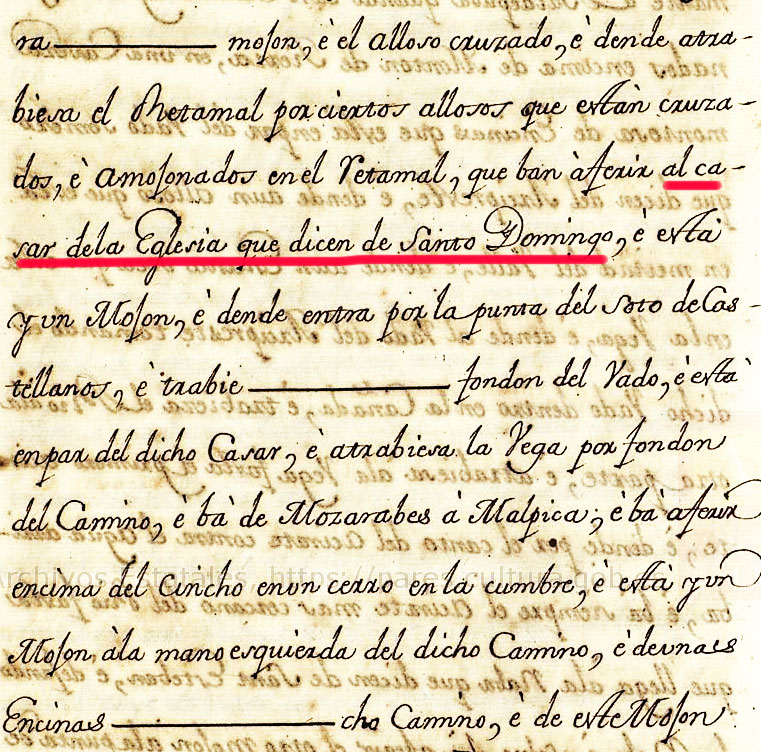 ra ———— moson, è el alloso cruzado, è dende atra-
biesa el Retamal por ciertos allosos que estàn cruza-
dos, è amosonados en el retamal, que ban à ferir al ca-
sar dela Eglesia que dicen de Santo Domingo, è està
y vn Moson, è dende entra por la punta del soto de Cas-
tellanos, è trabie ———— fondon del Vado, è està
enpar del dicho Casar, è atrabiesa la Vega por fondon
del Camino, è bà de Mozarabes à Malpica; è bà aferir
encima del Cincho en vn cerro en la cumbre, è està y vn
Moson àla mano esquierda del dicho Camino, è de vnas
Encinas ———— cho Camino, è de este Moson